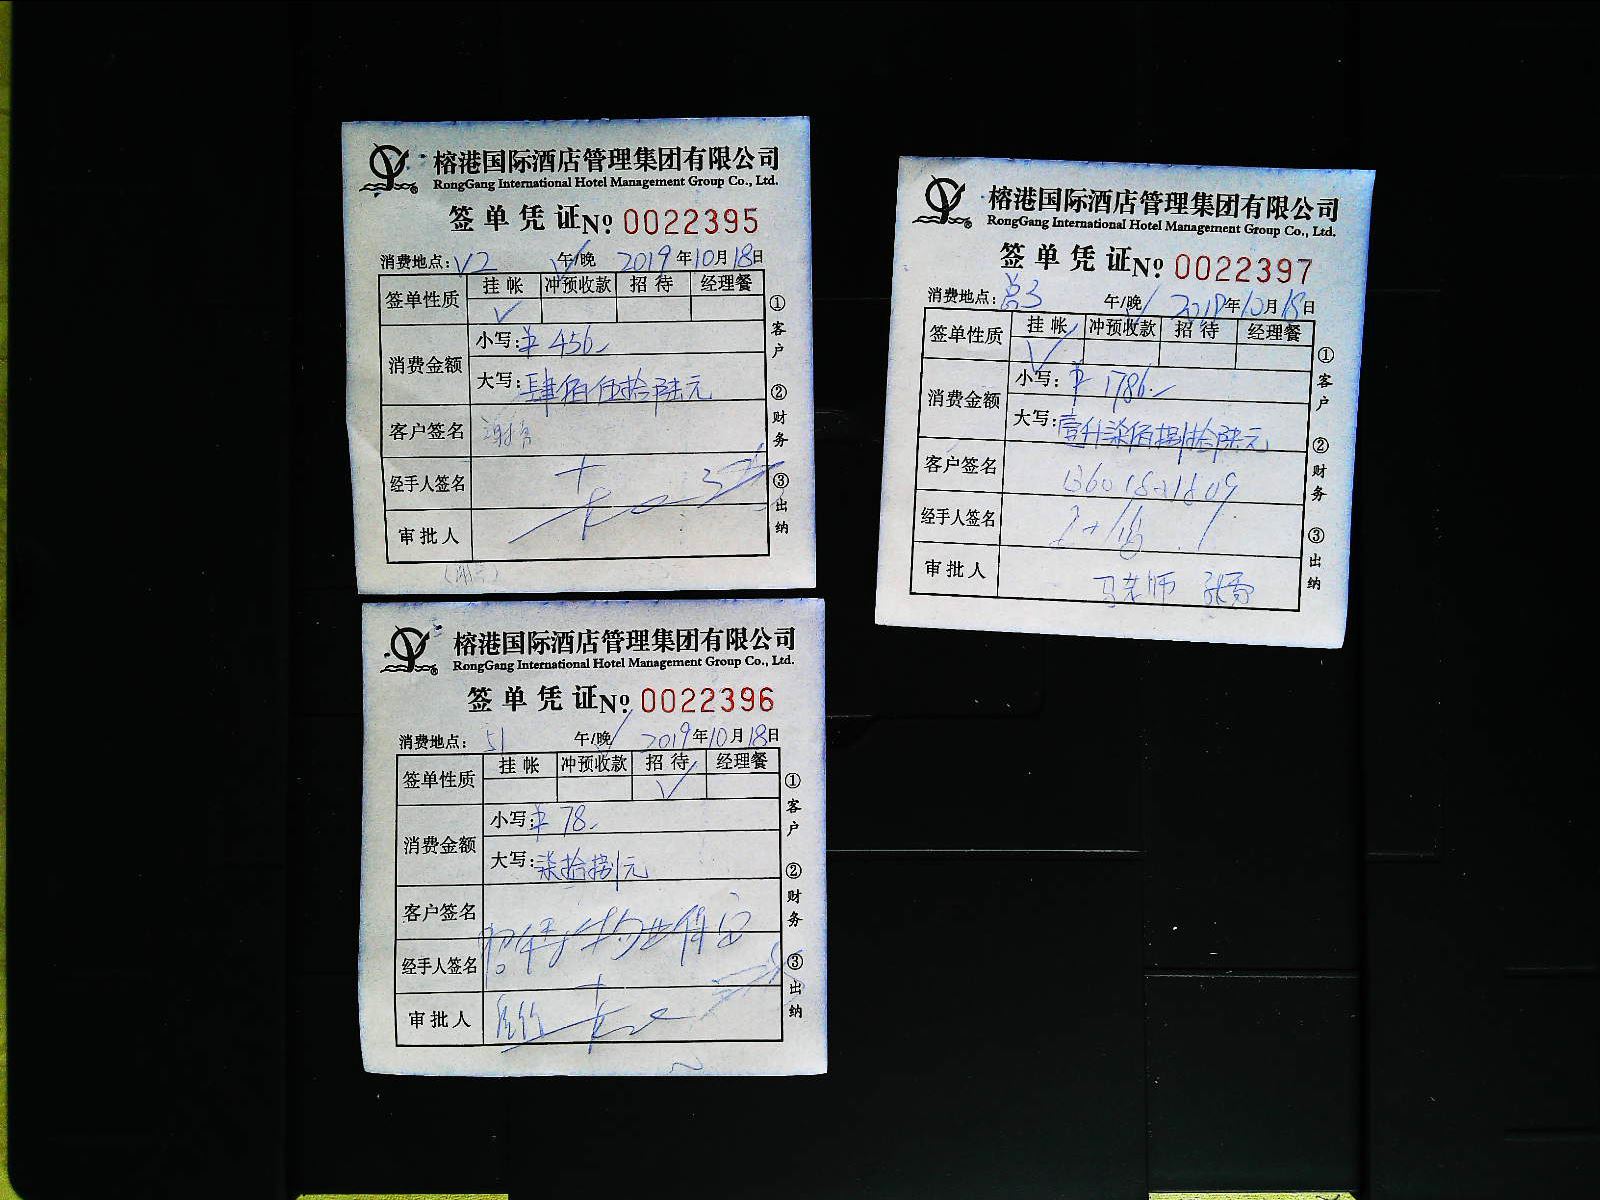 榕港国际酒店管理集团有限公司
RongGang International Hotel Management Group Co., Ltd.
签单凭证№ 0022395
消费地点: V2 午/晚 2019年10月18日
签单性质 挂帐 冲预收款 招待 经理餐
✓
消费金额 小写: ¥ 456
大写: 肆佰伍拾陆元
客户签名
经手人签名
审批人
①客户 ②财务 ③出纳
榕港国际酒店管理集团有限公司
RongGang International Hotel Management Group Co., Ltd.
签单凭证№ 0022396
消费地点: 51 午/晚 2019年10月18日
签单性质 挂帐 冲预收款 招待 经理餐
✓
消费金额 小写: ¥ 78
大写: 柒拾捌元
客户签名
经手人签名
审批人
①客户 ②财务 ③出纳
榕港国际酒店管理集团有限公司
RongGang International Hotel Management Group Co., Ltd.
签单凭证№ 0022397
消费地点: 午/晚 2019年10月18日
签单性质 挂帐 冲预收款 招待 经理餐
✓
消费金额 小写: ¥ 1786
大写: 壹仟柒佰捌拾陆元
客户签名
经手人签名
审批人 马老师
①客户 ②财务 ③出纳